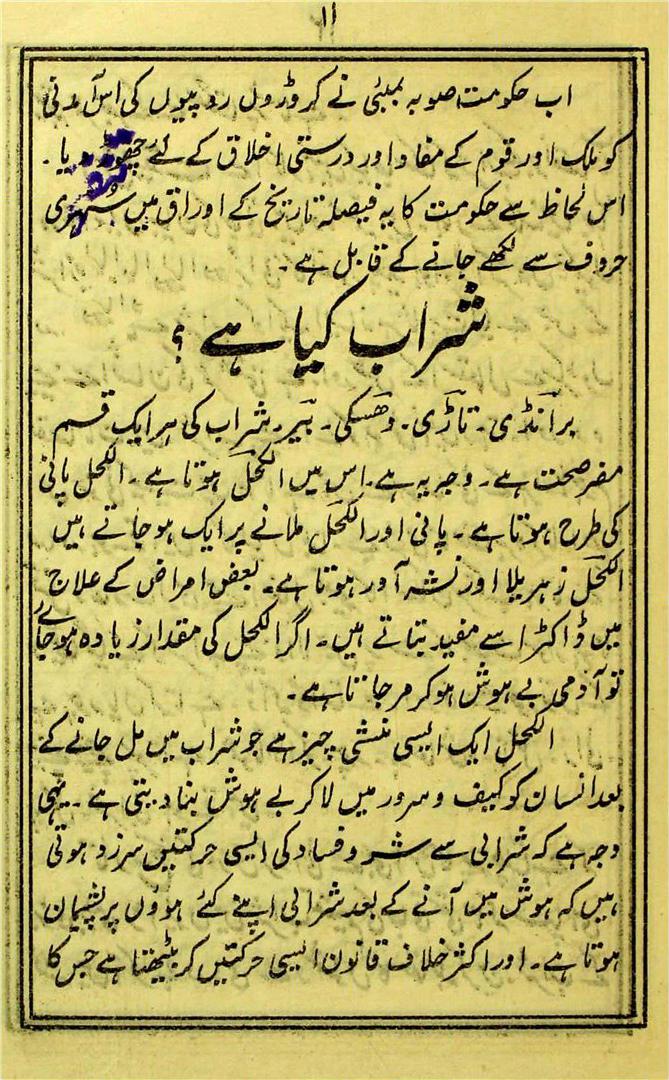 ۱۱
اب حکومت صوبہ بمبئی نے کروڑوں روپیوں کی اس آمدنی
کو ملک اور قوم کے مفاد اور درستی اخلاق کے لئے چھوڑ دیا۔
اس لحاظ سے حکومت کا یہ فیصلہ تاریخ کے اوراق میں سنہری
حروف سے لکھے جانے کے قابل ہے۔
شراب کیا ہے ؟
برانڈی۔ تاڑی۔ وھسکی۔ بیر۔ شراب کی ہر ایک قسم
مضر صحت ہے۔ وجہ یہ ہے۔ اس میں الکحل ہوتا ہے۔ الکحل پانی
کی طرح ہوتا ہے۔ پانی اور الکحل ملانے پر ایک ہو جاتے ہیں
الکحل زہریلا اور نشہ آور ہوتا ہے۔ بعض امراض کے علاج
میں ڈاکٹر اسے مفید بتاتے ہیں۔ اگر الکحل کی مقدار زیادہ ہو جائے
تو آدمی بے ہوش ہو کر مر جاتا ہے۔
الکحل ایک ایسی منشی چیز ہے جو شراب میں مل جانے کے
بعد انسان کو کیف و سرور میں لا کر بے ہوش بنا دیتی ہے۔ یہی
وجہ ہے کہ شرابی سے شر و فساد کی ایسی حرکتیں سرزد ہوتی
ہیں کہ ہوش میں آنے کے بعد شرابی اپنے کئے ہوؤں پر پشیمان
ہوتا ہے۔ اور اکثر خلاف قانون ایسی حرکتیں کر بیٹھتا ہے جس کا